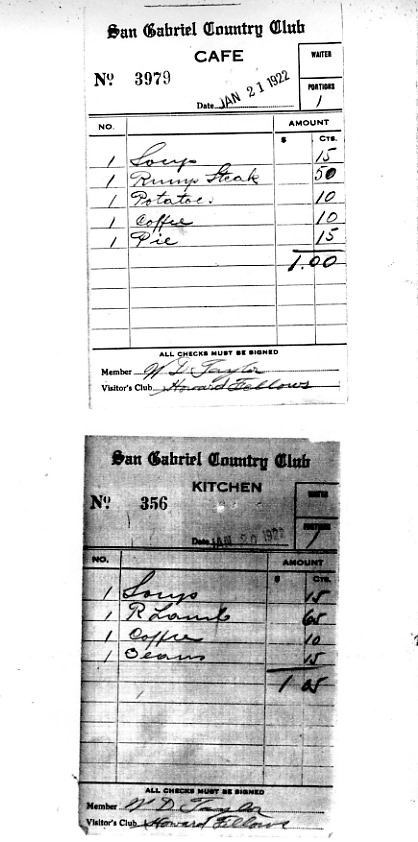 San Gabriel Country Club
CAFE
WAITER
No 3979
PORTIONS
1
Date JAN 21 1922
NO. AMOUNT
$ CTS.
1 Soup 15
1 Rump Steak 50
1 Potatoes 10
1 Coffee 10
1 Pie 15
1.00
ALL CHECKS MUST BE SIGNED
Member W D Taylor
Visitor's Club Howard Fellows
San Gabriel Country Club
KITCHEN
WAITER
No 356
PORTIONS
1
Date JAN 20 1922
NO. AMOUNT
$ CTS.
1 Soup 15
1 R Lamb 65
1 Coffee 10
1 15
1 05
ALL CHECKS MUST BE SIGNED
Member W D Taylor
Visitor's Club Howard Fellows